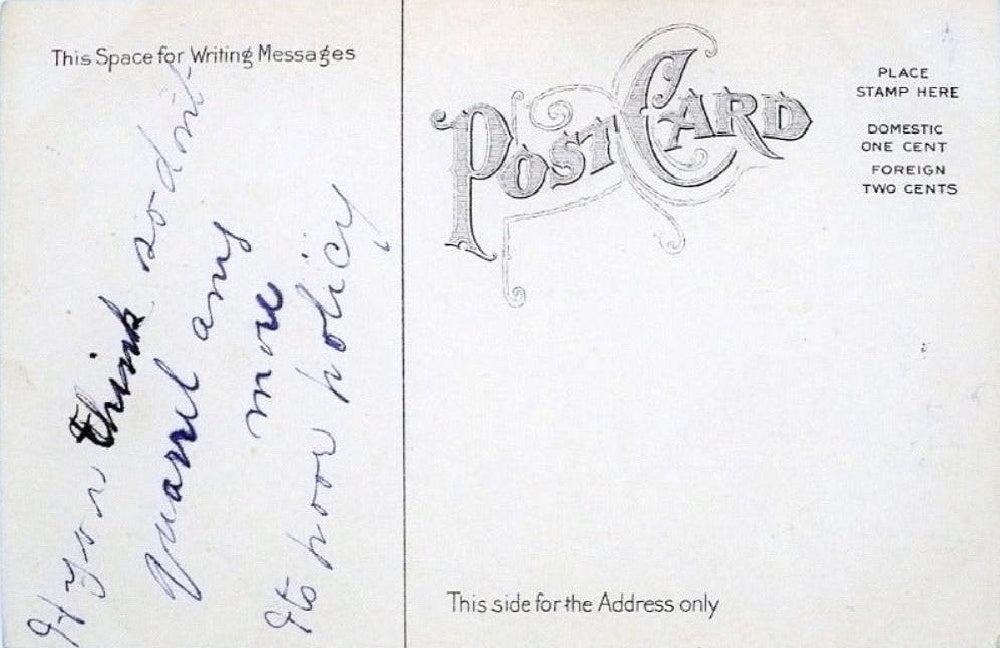 This Space for Writing Messages
If you think so dont
quarrel any
more
Its poor policy
POST CARD
PLACE
STAMP HERE
DOMESTIC
ONE CENT
FOREIGN
TWO CENTS
This side for the Address only